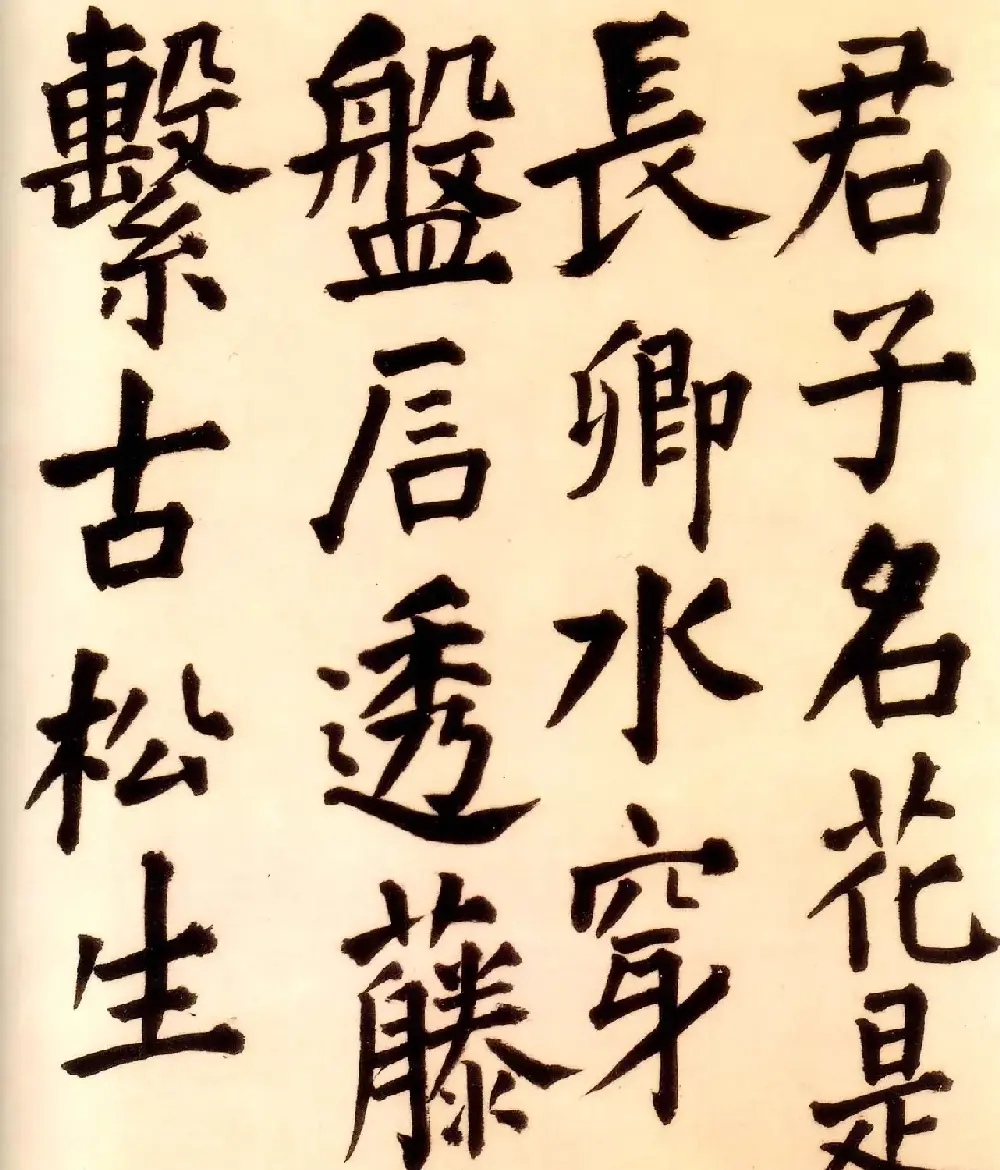 君子名花是
長卿水穿
盤石透藤
繫古松生